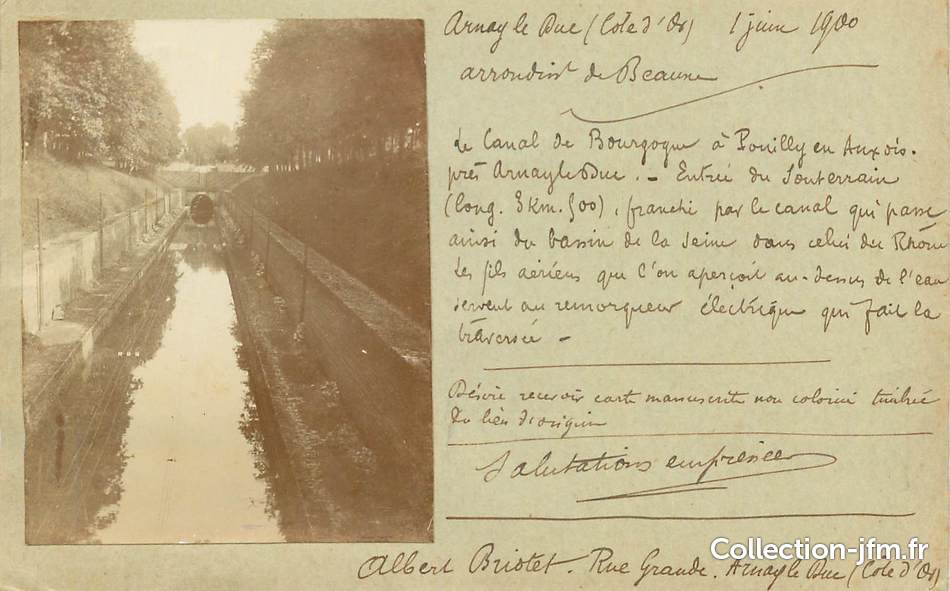 Arnay le Duc (Cote d'Or) 1 juin 1900
arrondist de Beaune
Le Canal de Bourgogne à Pouilly en Auxois.
près Arnay le Duc. - Entrée du Souterrain
(long. 3 km. 500), franchi par le canal qui passe
ainsi du bassin de la Seine dans celui du Rhône
Les fils aériens que l'on aperçoit au-dessus de l'eau
servent au remorqueur électrique qui fait la
traversée -
Désire recevoir carte manuscrite non coloriée timbrée
du lieu d'origine
Salutations empressées
Albert Briotet. Rue Grande. Arnay le Duc (Cote d'Or)
Collection-jfm.fr